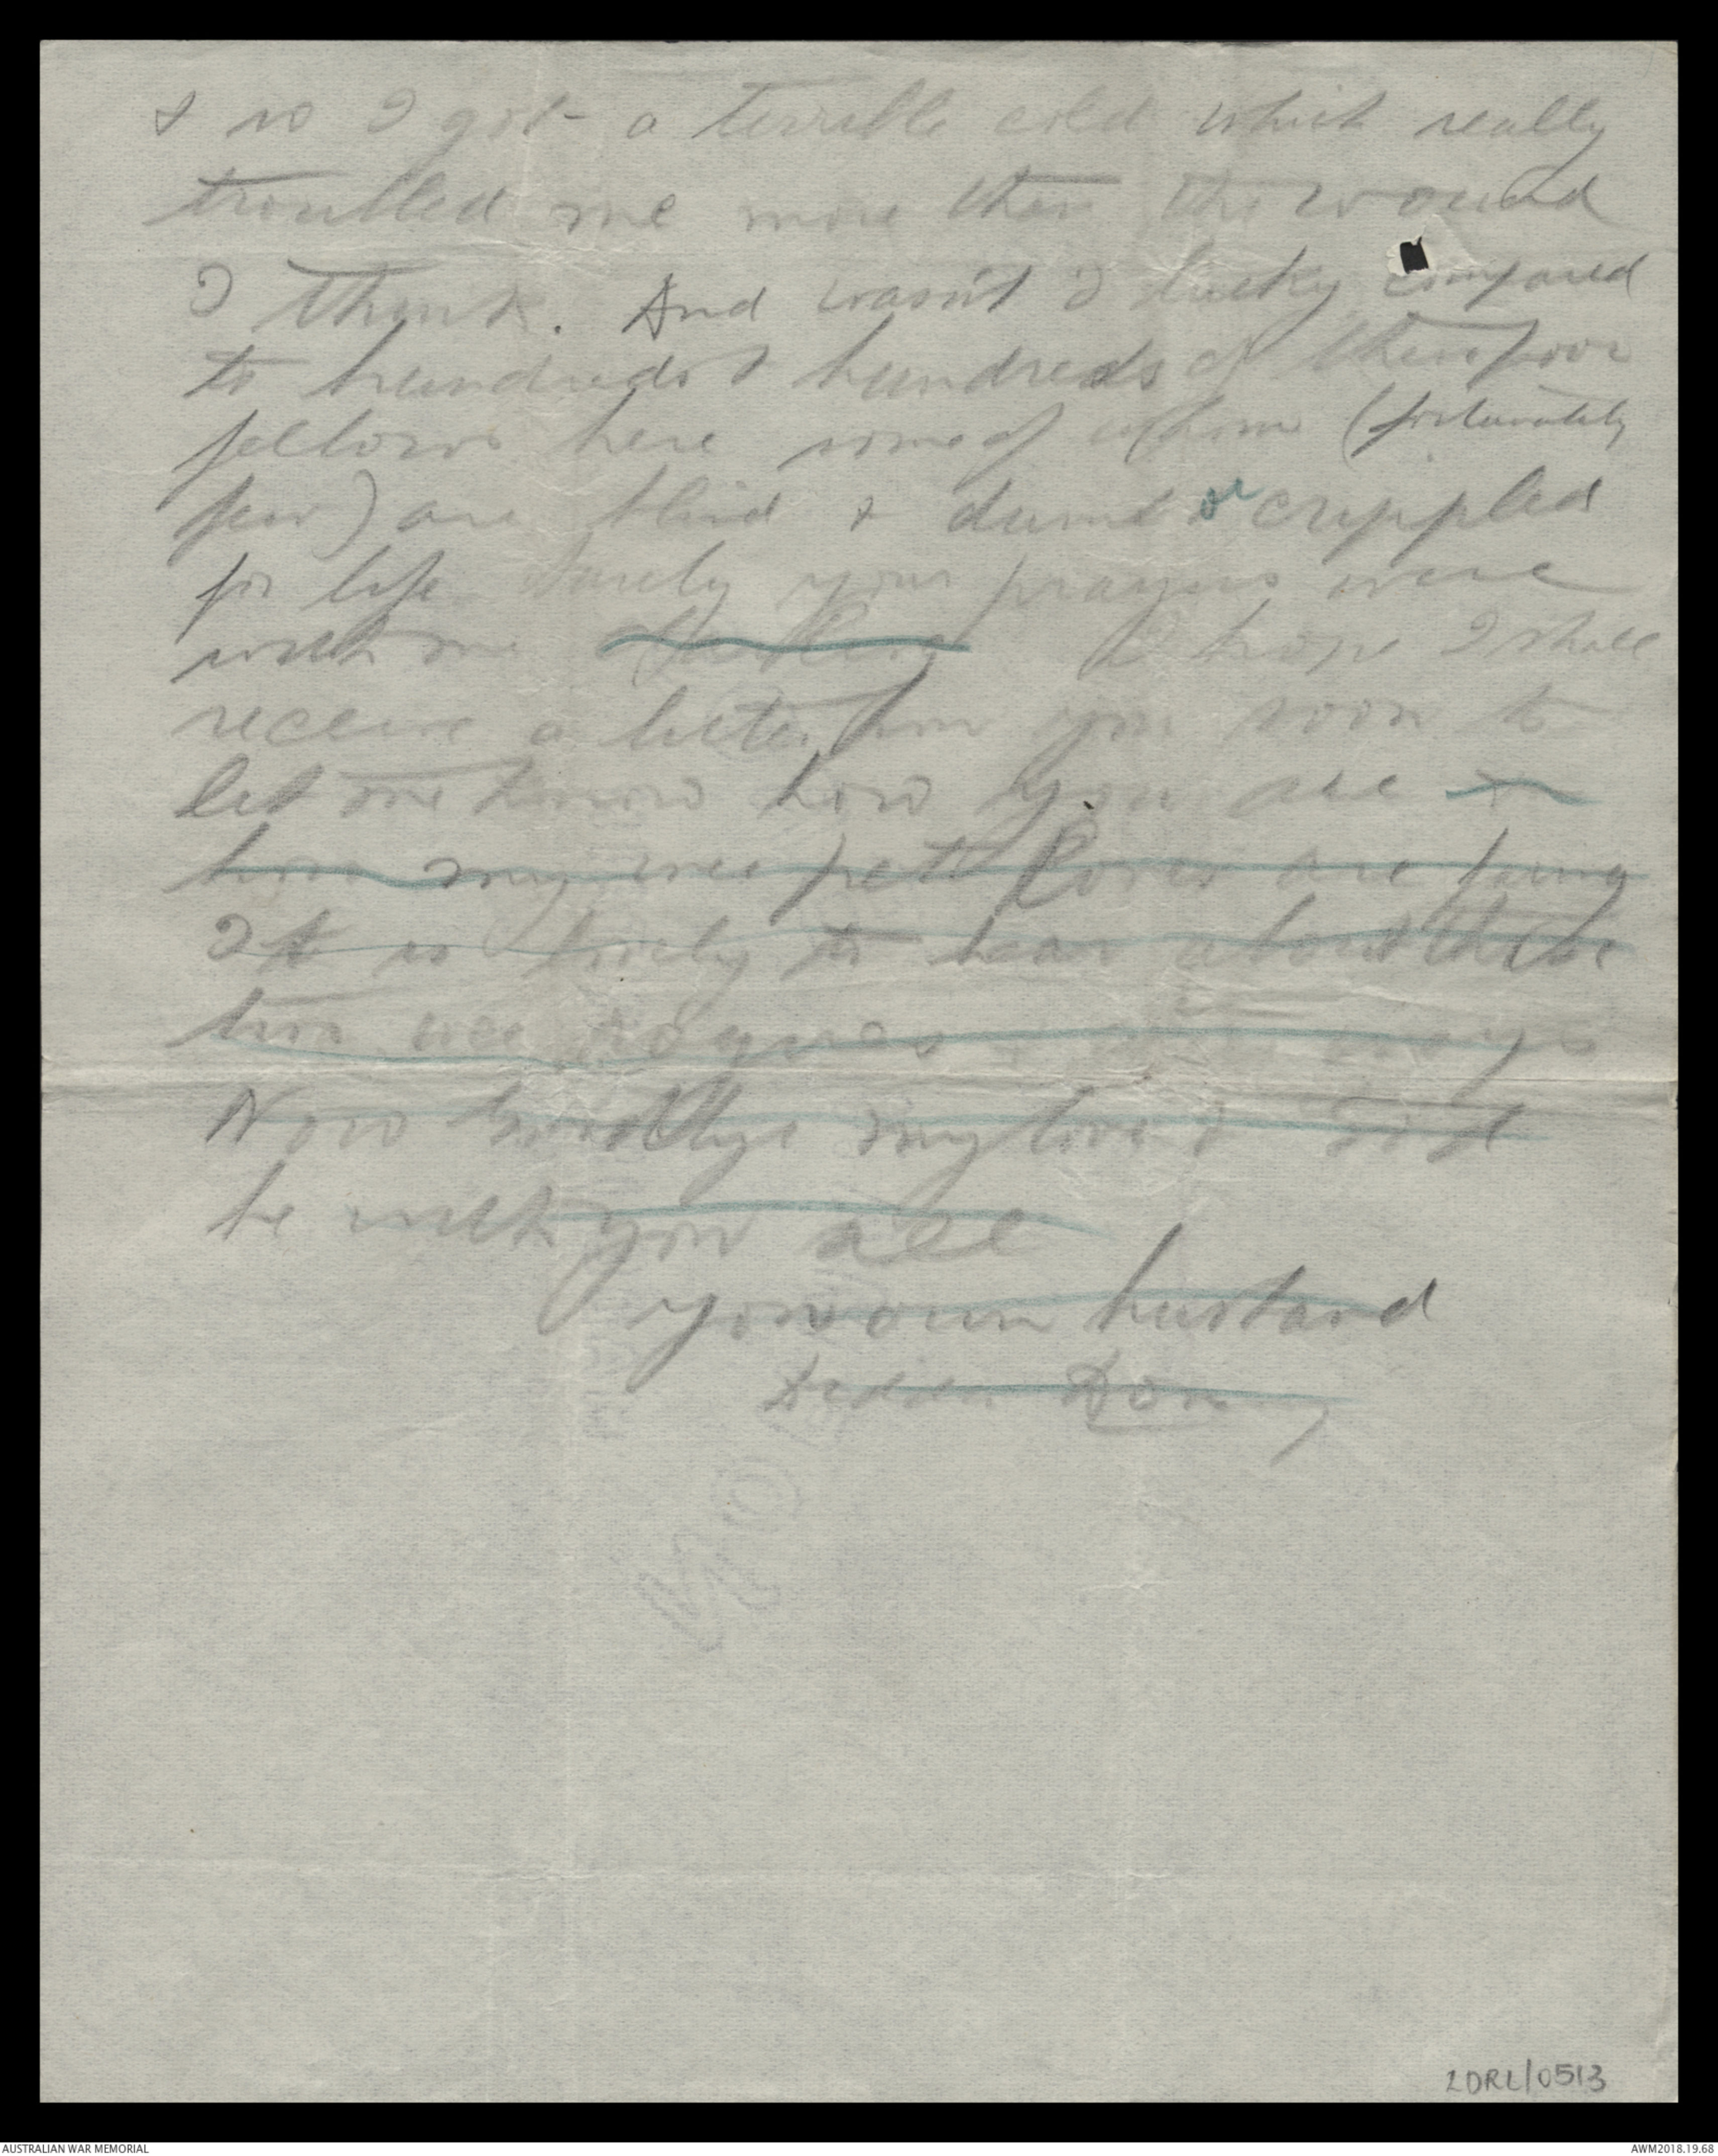 & so I got a terrible cold which really
troubled me more than the wound
I think. And wasn't I lucky compared
to hundreds & hundreds of these poor
fellows here some of whom (fortunately
few) are blind & dumb or crippled
for life. Surely your prayers were
with me darling I hope I shall
receive a letter from you soon to
let me know how you are &
how my wee pet are
It is lovely to hear about these
two wee rogues & ways
Now Goodbye my love & God
be with you all
Your own husband
Don
2DRL/0513
AUSTRALIAN WAR MEMORIAL
AWM2018.19.68